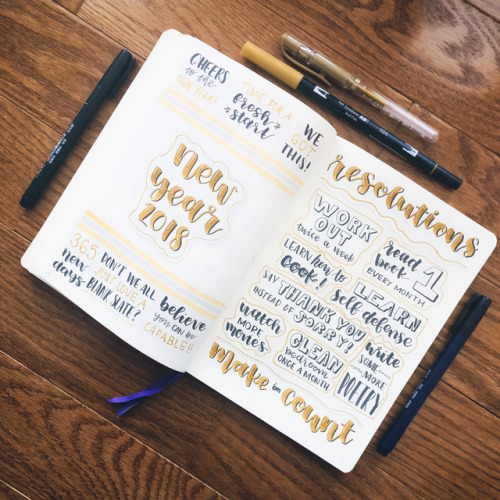 CHEERS
to the
NEW YEAR!
TIME FOR A
fresh
start
WE
GOT
THIS!
new
year
2018
365
new
days
DON'T WE ALL
JUST LOVE A
BLANK SLATE?
believe
you can be
CAPABLE!!
resolutions
WORK
OUT
twice a week
read
1
week
EVERY MONTH
LEARN how to
COOK!
LEARN
self defense
SAY THANK YOU
INSTEAD OF SORRY!
watch
MORE
movies
CLEAN
bedroom
ONCE A MONTH
write
SOME
MORE
POETRY
make em count